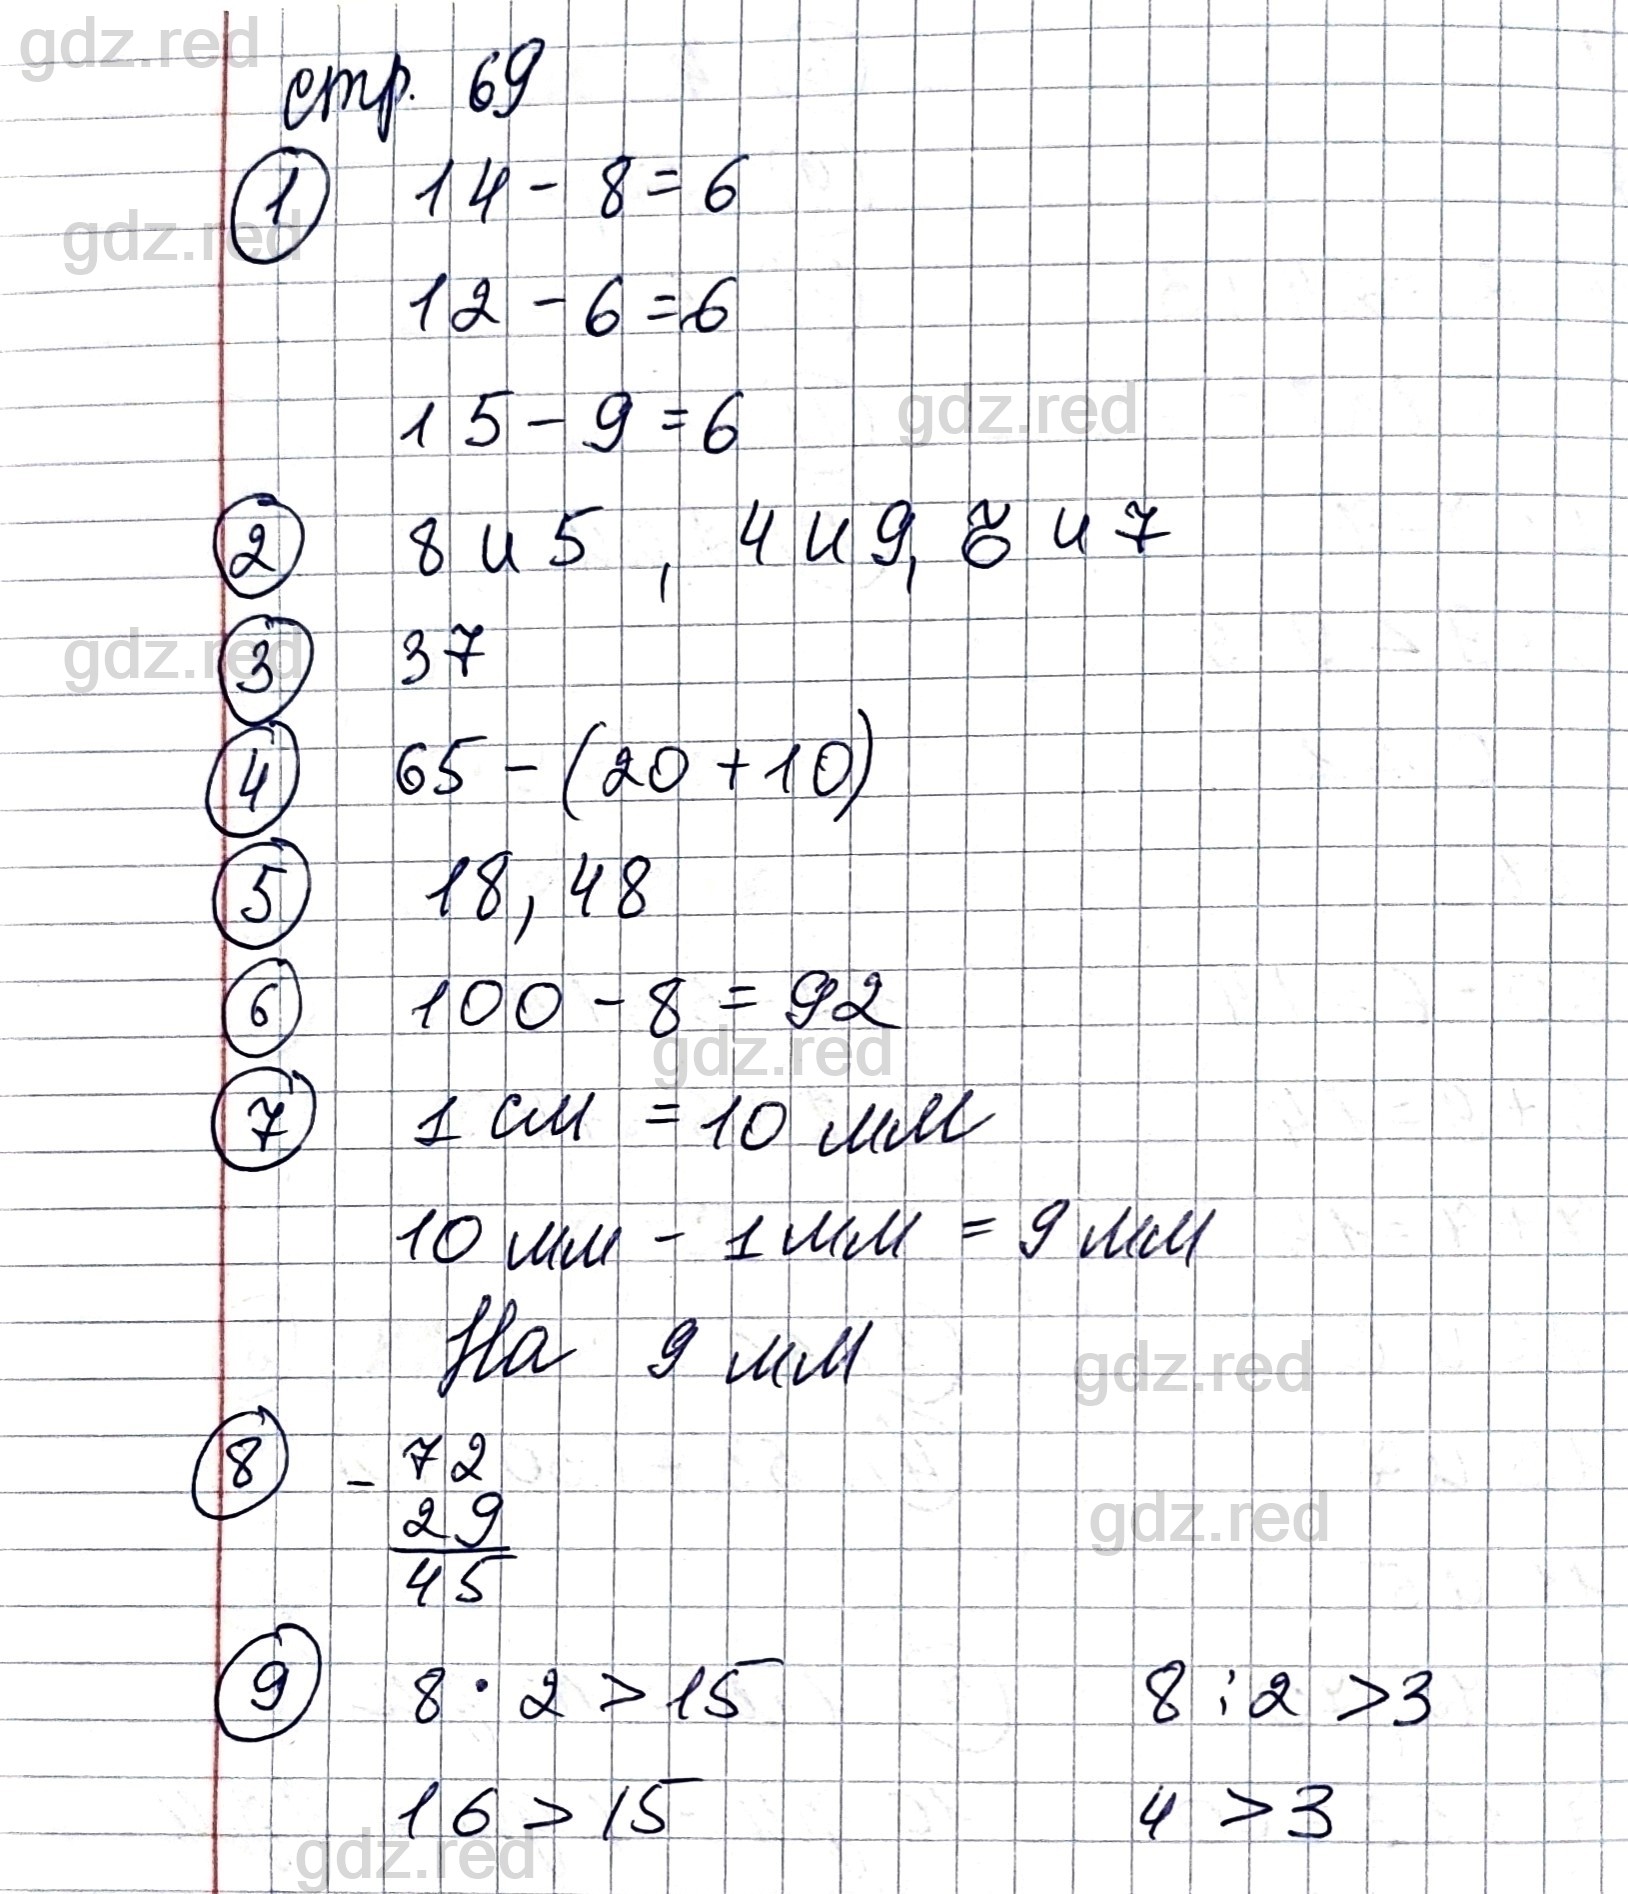 gdz.red
стр. 69
1 14 - 8 = 6
gdz.red
12 - 6 = 6
15 - 9 = 6
gdz.red
2 8 и 5 , 4 и 9, и 7
3 37
gdz.red
4 65 - (20 + 10)
5 18, 48
6 100 - 8 = 92
gdz.red
7 1 см = 10 мм
10 мм - 1 мм = 9 мм
На 9 мм
gdz.red
8 - 72
29
45
gdz.red
9 8 · 2 > 15 8 : 2 > 3
16 > 15 4 > 3
gdz.red